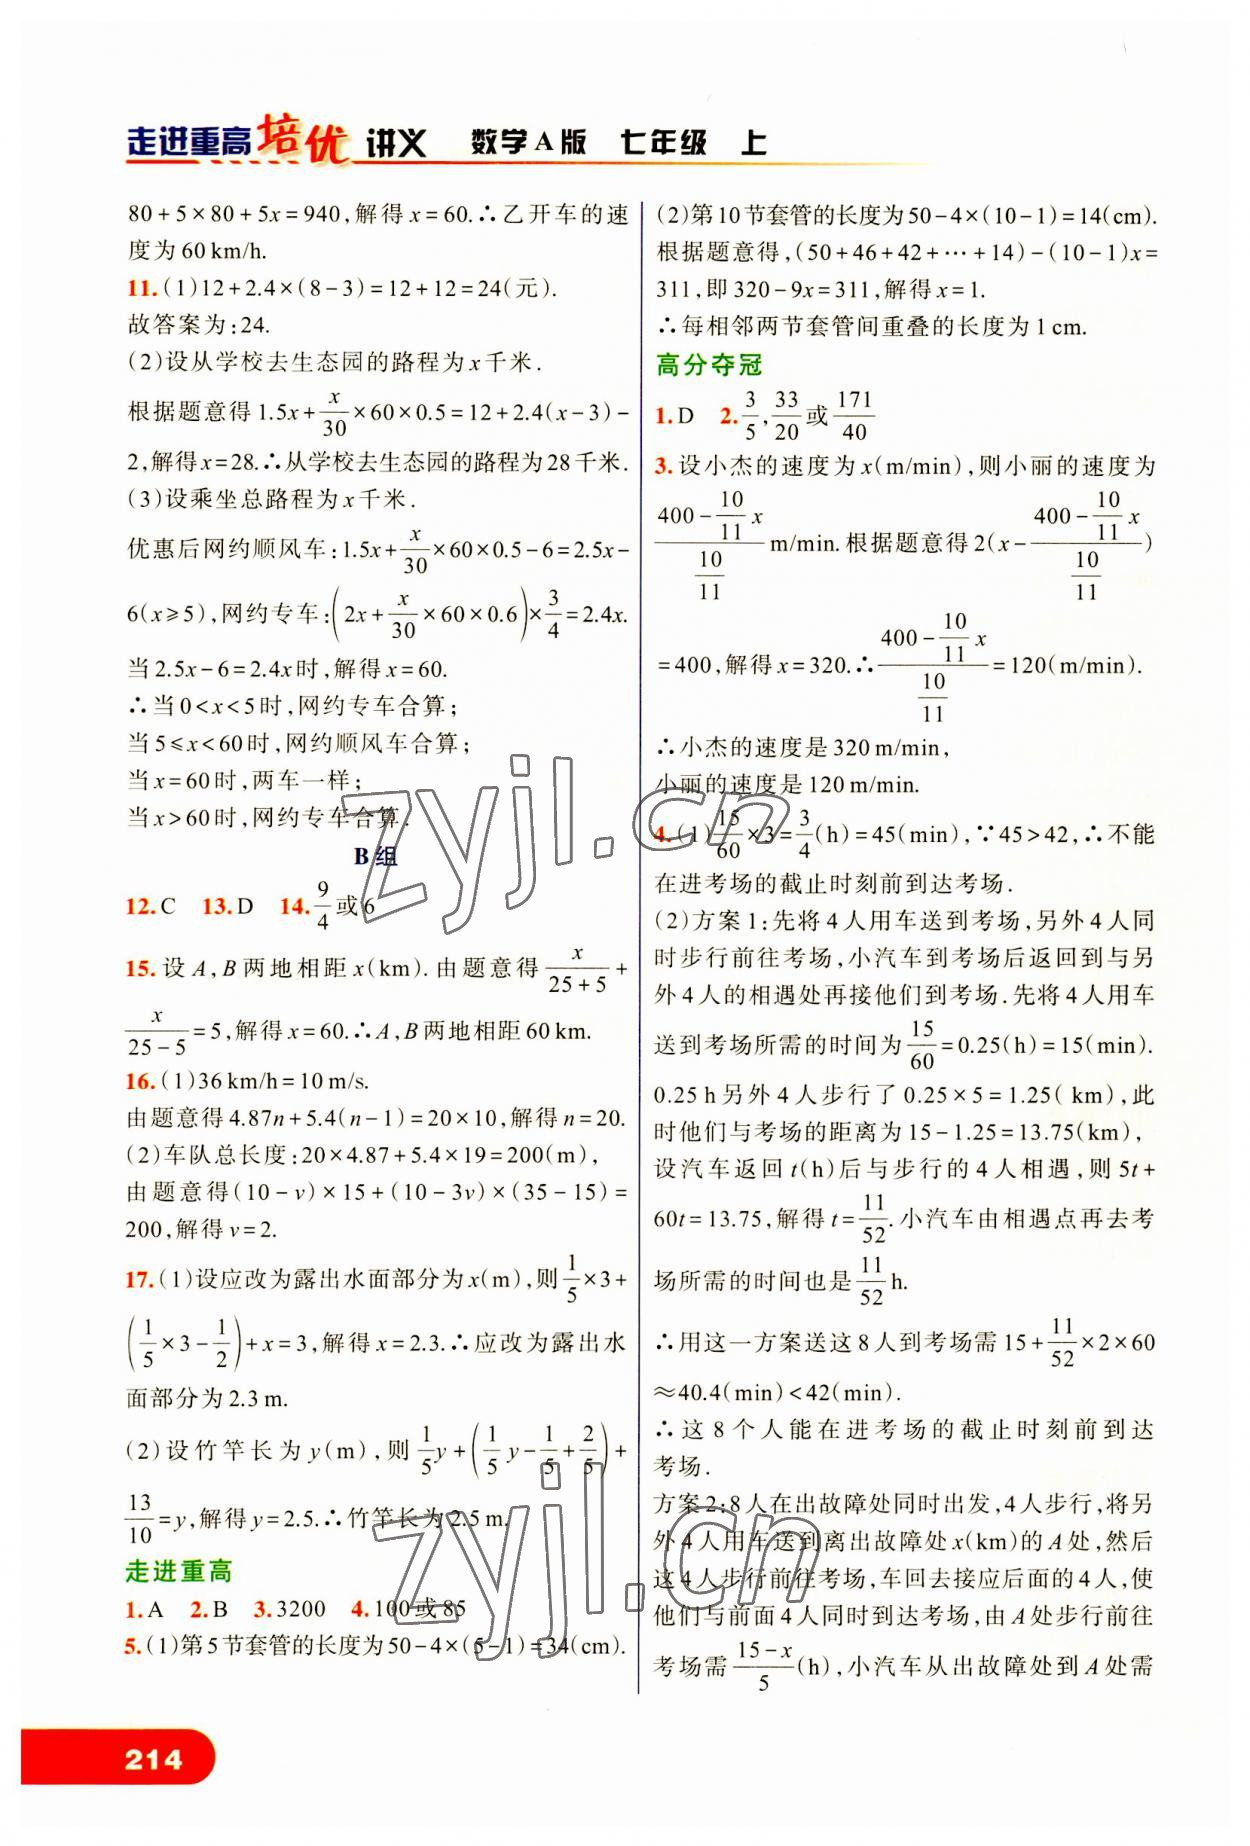 走进重高培优 讲义 数学A版 七年级 上
80+5×80+5x=940,解得x=60.∴乙开车的速
度为60 km/h.
11.(1)12+2.4×(8-3)=12+12=24(元).
故答案为:24.
(2)设从学校去生态园的路程为x千米.
根据题意得1.5x+x/30×60×0.5=12+2.4(x-3)-
2,解得x=28.∴从学校去生态园的路程为28千米.
(3)设乘坐总路程为x千米.
优惠后网约顺风车:1.5x+x/30×60×0.5-6=2.5x-
6(x≥5),网约专车:(2x+x/30×60×0.6)×3/4=2.4x.
当2.5x-6=2.4x时,解得x=60.
∴当0<x<5时,网约专车合算;
当5≤x<60时,网约顺风车合算;
当x=60时,两车一样;
当x>60时,网约专车合算.
B组
12.C 13.D 14.9/4或6
15.设A,B两地相距x(km).由题意得x/(25+5)+
x/(25-5)=5,解得x=60.∴A,B两地相距60 km.
16.(1)36 km/h=10 m/s.
由题意得4.87n+5.4(n-1)=20×10,解得n=20.
(2)车队总长度:20×4.87+5.4×19=200(m),
由题意得(10-v)×15+(10-3v)×(35-15)=
200,解得v=2.
17.(1)设应改为露出水面部分为x(m),则1/5×3+
(1/5×3-1/2)+x=3,解得x=2.3.∴应改为露出水
面部分为2.3 m.
(2)设竹竿长为y(m),则1/5y+(1/5y-1/5+2/5)+
13/10=y,解得y=2.5.∴竹竿长为2.5 m.
走进重高
1.A 2.B 3.3200 4.100或85
5.(1)第5节套管的长度为50-4×(5-1)=34(cm).
(2)第10节套管的长度为50-4×(10-1)=14(cm).
根据题意得,(50+46+42+…+14)-(10-1)x=
311,即320-9x=311,解得x=1.
∴每相邻两节套管间重叠的长度为1 cm.
高分夺冠
1.D 2.3/5,33/20或171/40
3.设小杰的速度为x(m/min),则小丽的速度为
(400-10/11x)/(10/11) m/min.根据题意得2(x-(400-10/11x)/(10/11))
=400,解得x=320.∴(400-10/11x)/(10/11)=120(m/min).
∴小杰的速度是320 m/min,
小丽的速度是120 m/min.
4.(1)15/60×3=3/4(h)=45(min),∵45>42,∴不能
在进考场的截止时刻前到达考场.
(2)方案1:先将4人用车送到考场,另外4人同
时步行前往考场,小汽车到考场后返回到与另
外4人的相遇处再接他们到考场.先将4人用车
送到考场所需的时间为15/60=0.25(h)=15(min).
0.25 h另外4人步行了0.25×5=1.25( km),此
时他们与考场的距离为15-1.25=13.75(km),
设汽车返回t(h)后与步行的4人相遇,则5t+
60t=13.75,解得t=11/52.小汽车由相遇点再去考
场所需的时间也是11/52h.
∴用这一方案送这8人到考场需15+11/52×2×60
≈40.4(min)<42(min).
∴这8个人能在进考场的截止时刻前到达
考场.
方案2:8人在出故障处同时出发,4人步行,将另
外4人用车送到离出故障处x(km)的A处,然后
这4人步行前往考场,车回去接应后面的4人,使
他们与前面4人同时到达考场,由A处步行前往
考场需(15-x)/5(h),小汽车从出故障处到A处需
214
zyjl.cn
zyjl.cn